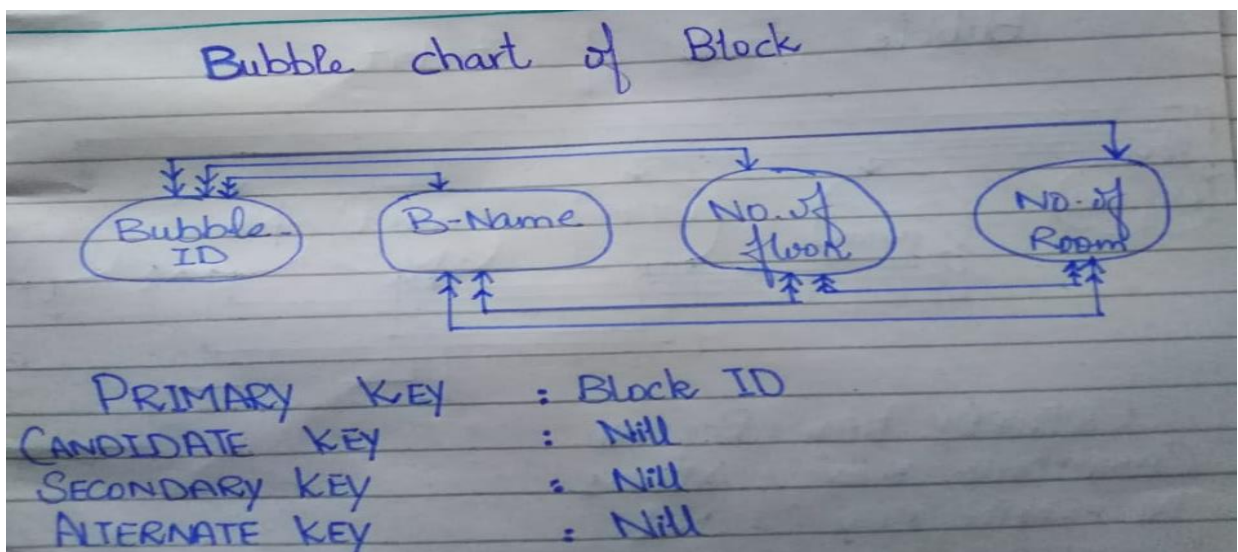 Bubble chart of Block
Bubble-
ID
B-Name
No. of
floor
No. of
Room
PRIMARY KEY : Block ID
CANDIDATE KEY : Nill
SECONDARY KEY : Nill
ALTERNATE KEY : Nill